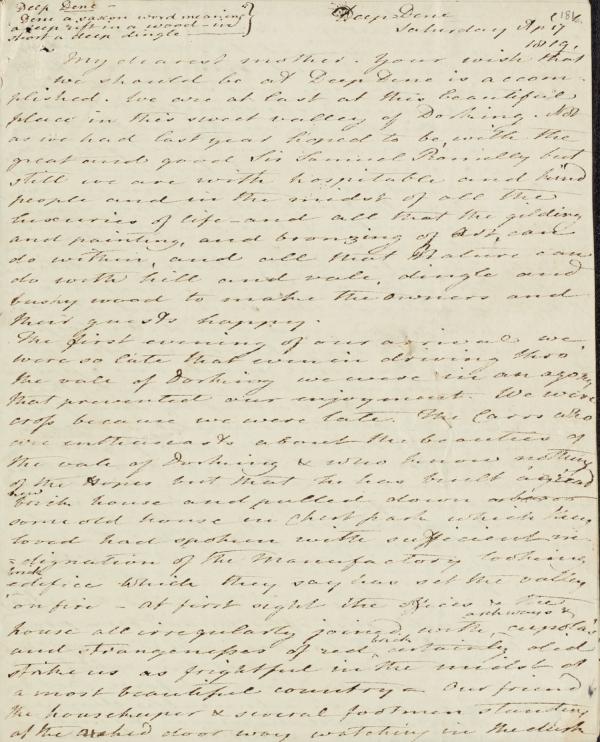 Deep Dene –
Dene a saxon word meaning
a deep rift in a wood – in
short a deep dingle –
Deep Dene
Saturday Ap 17
1819.
My dearest mother. Your wish that
we should be at Deep Dene is accom-
plished. We are at last at this beautiful
place in this sweet valley of Dorking. Not
as we had last year hoped to be, with the
great and good Sir Samuel Romilly but
still we are with hospitable and kind
people and in the midst of all the
luxuries of life – and all that the gilding
and painting, and bronzing of Art, can
do within, and all that Nature can
do with hill and vale, dingle and
bushy wood to make the owners and
their guests happy.
The first evening of our arrival we
were so late that even in driving thro'
the vale of Dorking we were in an agony
that prevented our enjoyment. We were
cross because we were late. The Carrs who
are enthusiasts about the beauties of
the vale of Dorking & who know nothing
of the Hopes but that he has built a great
new
brick house and pulled down
some old house in park which they
loved had spoken with sufficient in-
=dignation of the Manufactory looking
brick
edifice which they say has set the valley
on fire – At first sight the offices & the
archways &
house all irregularly joined with cupolas
and strangenesses of red brick certainly did
strike us as frightful in the midst of
a most beautiful country – Our friend
the housekeeper & several footmen standing
at the arched door way watching in the dusk